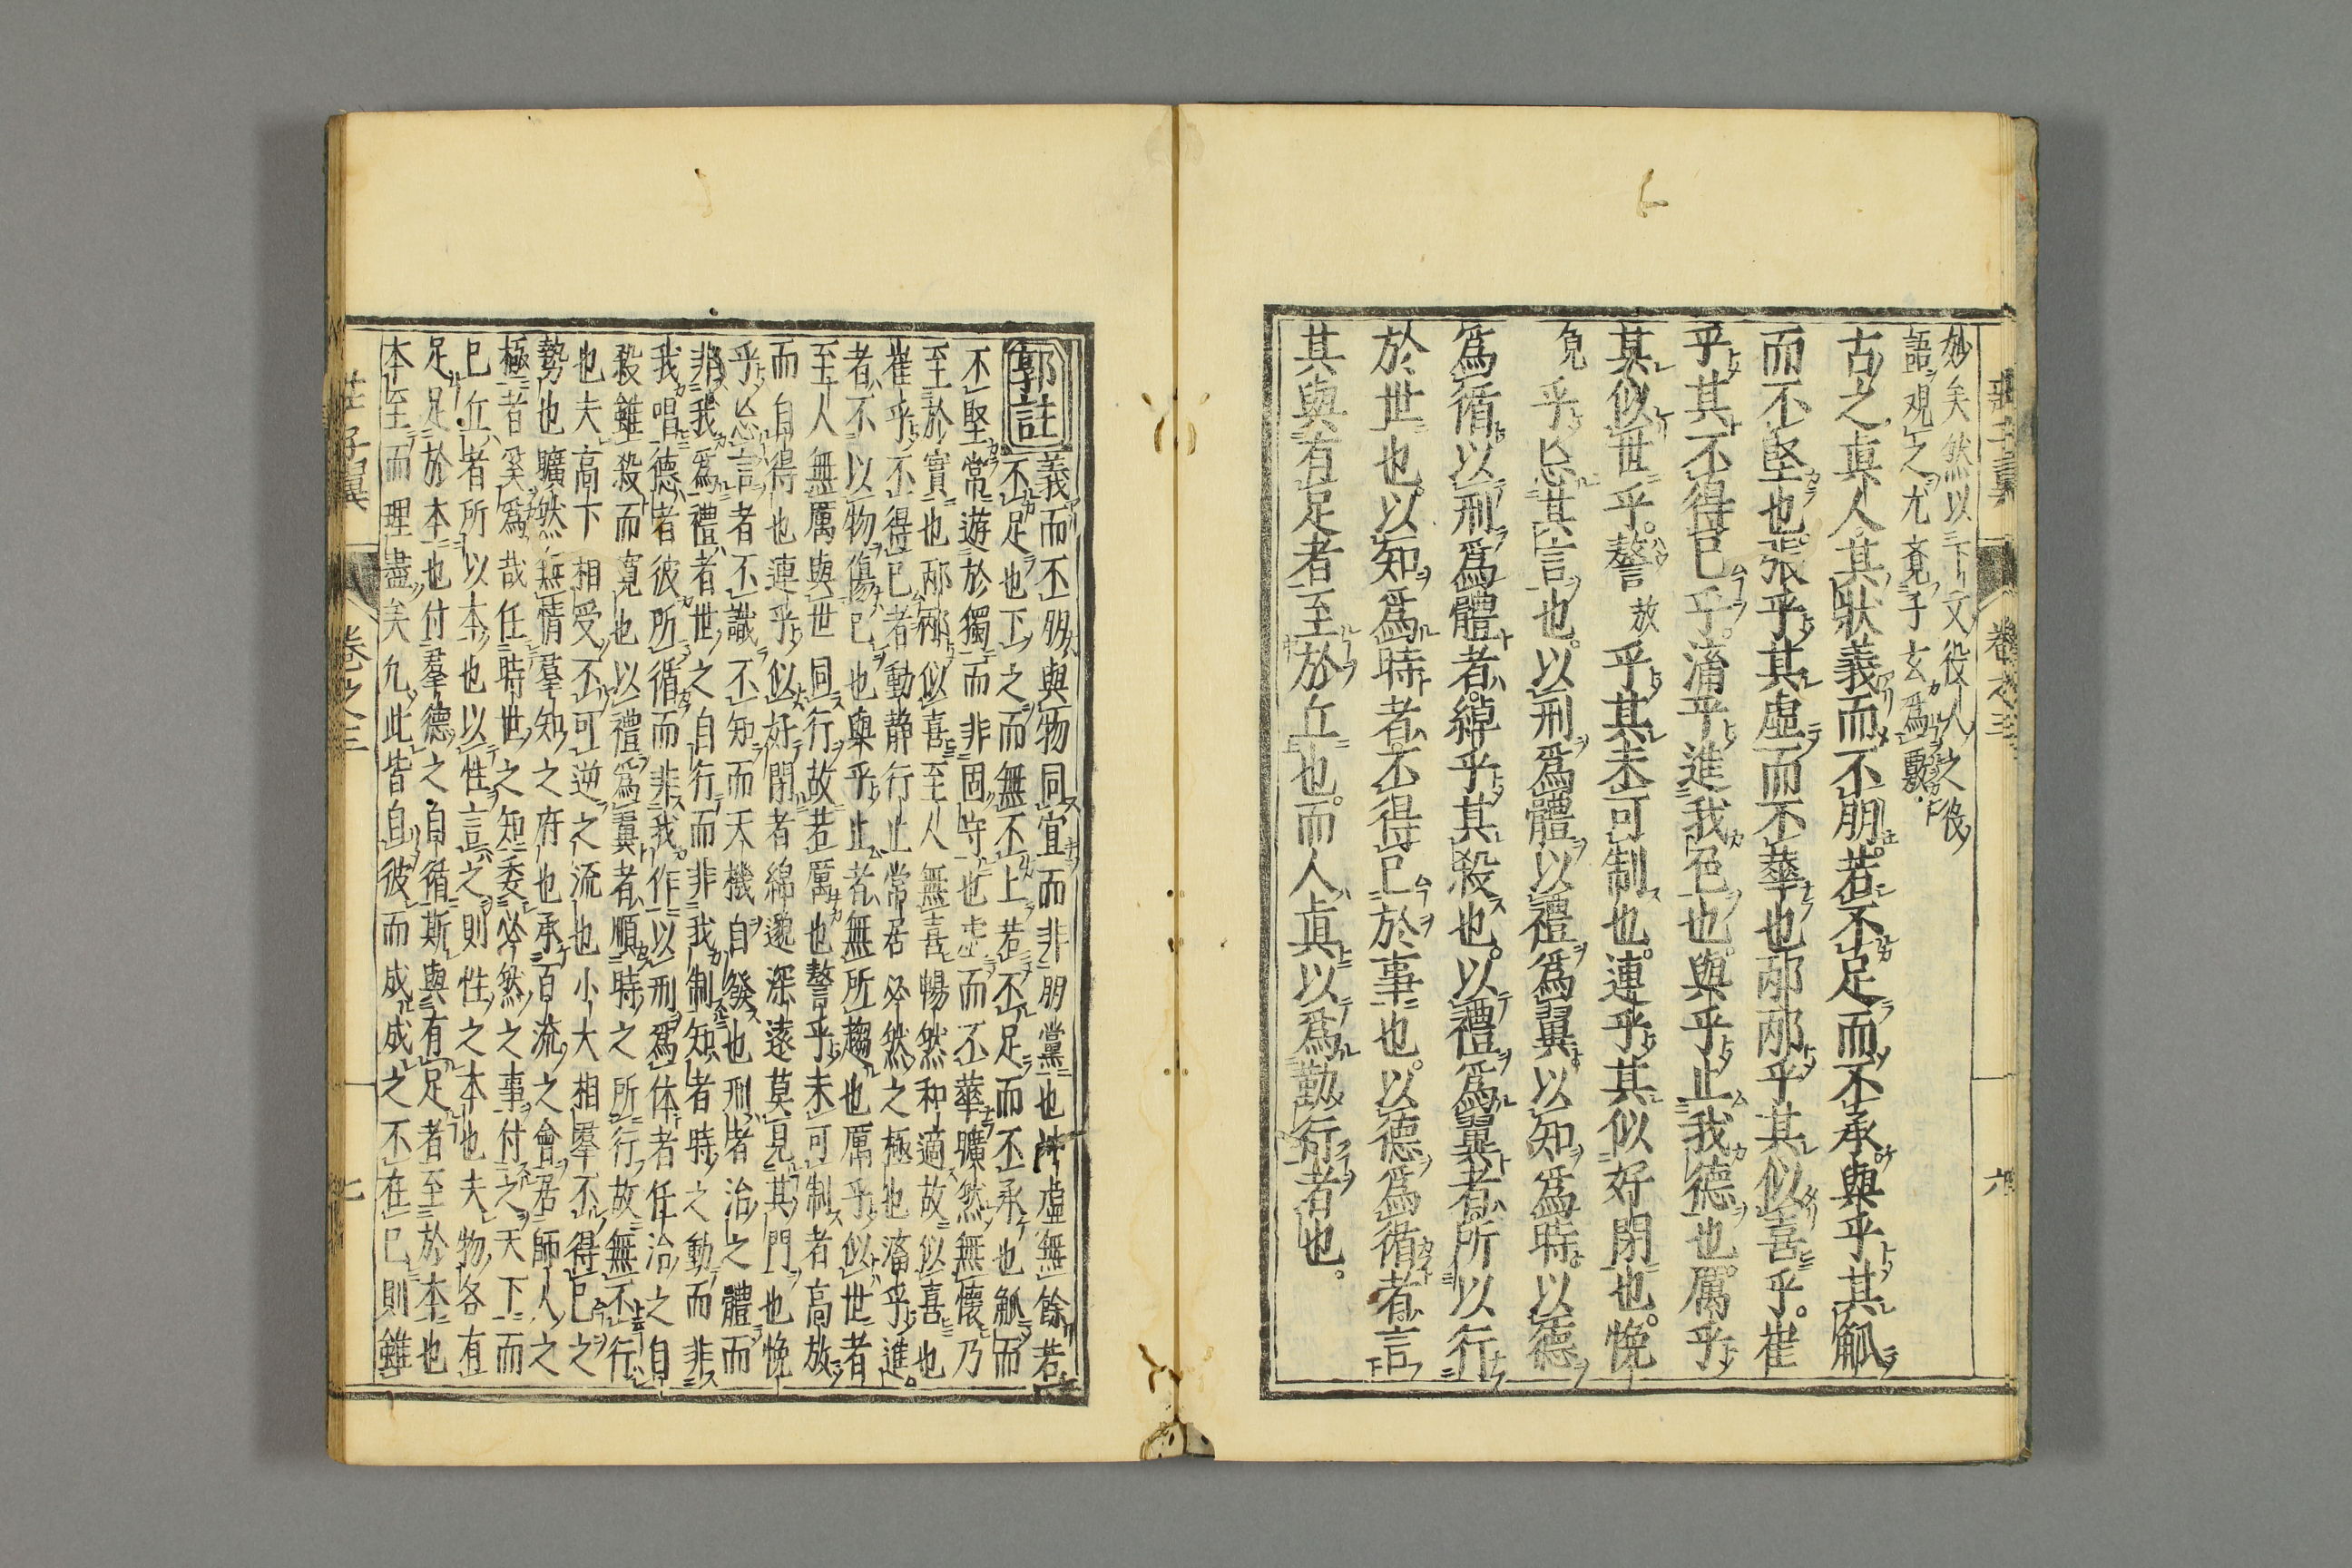 妙矣然以下文役人之役
語觀之尤覺子玄爲覈
古之眞人其狀義而不朋若不足而不承與乎其觚
而不堅也張乎其虛而不華也邴邴乎其似喜乎崔
乎其不得已乎滀乎進我色也與乎止我德也厲乎
其似世乎謷放乎其未可制也連乎其似好閉也悗
免乎忘其言也以刑爲體以禮爲翼以知爲時以德
爲循以刑爲體者綽乎其殺也以禮爲翼者所以行
於世也以知爲時者不得已於事也以德爲循者言
其與有足者至於丘也而人眞以爲勤行者也
莊子翼 卷之三 六
郭註 義而不朋與物同宜而非朋黨也沖虛無餘若
不足也下之而無不上若不足而不承也觚而
不堅常遊於獨而非固守也虛而不華曠然無懷乃
至於實也邴邴似喜至人無喜暢然和適故似喜也
崔乎不得已者動静行止常居必然之極也滀乎進
者不以物傷已也與乎止者無所趨也厲乎似世者
至人無厲與世同行故若厲也謷乎未可制者高放
而自得也連乎似好閉者綿邈深遠莫見其門也悗
乎忘言者不識不知而天機自發也刑者治之體而
非我爲禮者世之自行而非我制知者時之動而非
我唱德者彼所循而非我作以刑爲体者任治之自
殺雖殺而寬也以禮爲翼者順時之所行故無不行
也夫高下相受不可逆之流也小大相羣不得已之
勢也曠然無情羣知之府也承百流之會居師人之
極者奚爲哉任時世之知委必然之事付之天下而
已丘者所以本也以性言之則性之本也夫物各有
足足於本也付羣德之自循斯與有足者至於本也
本至而理盡矣凡此皆自彼而成成之不在已則雖
莊子翼 卷之三 七